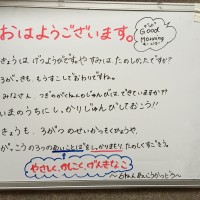 おはようございます。
Good
Morning
きょうは、げつようびですね。やすみは、たのしかったですか?
3がつも、もうすこしでおわりですね。
みなさん、つぎのがくねんのじゅんびは、できていますか??
いまのうちに、しっかりじゅんびしておこう!!
きょうも、3がつのせいかつもくひょうや、
がっこうの3つのあいことばをしっかりまもり、たのしくすごそう。
やさしく、かしこく、げんきなこ